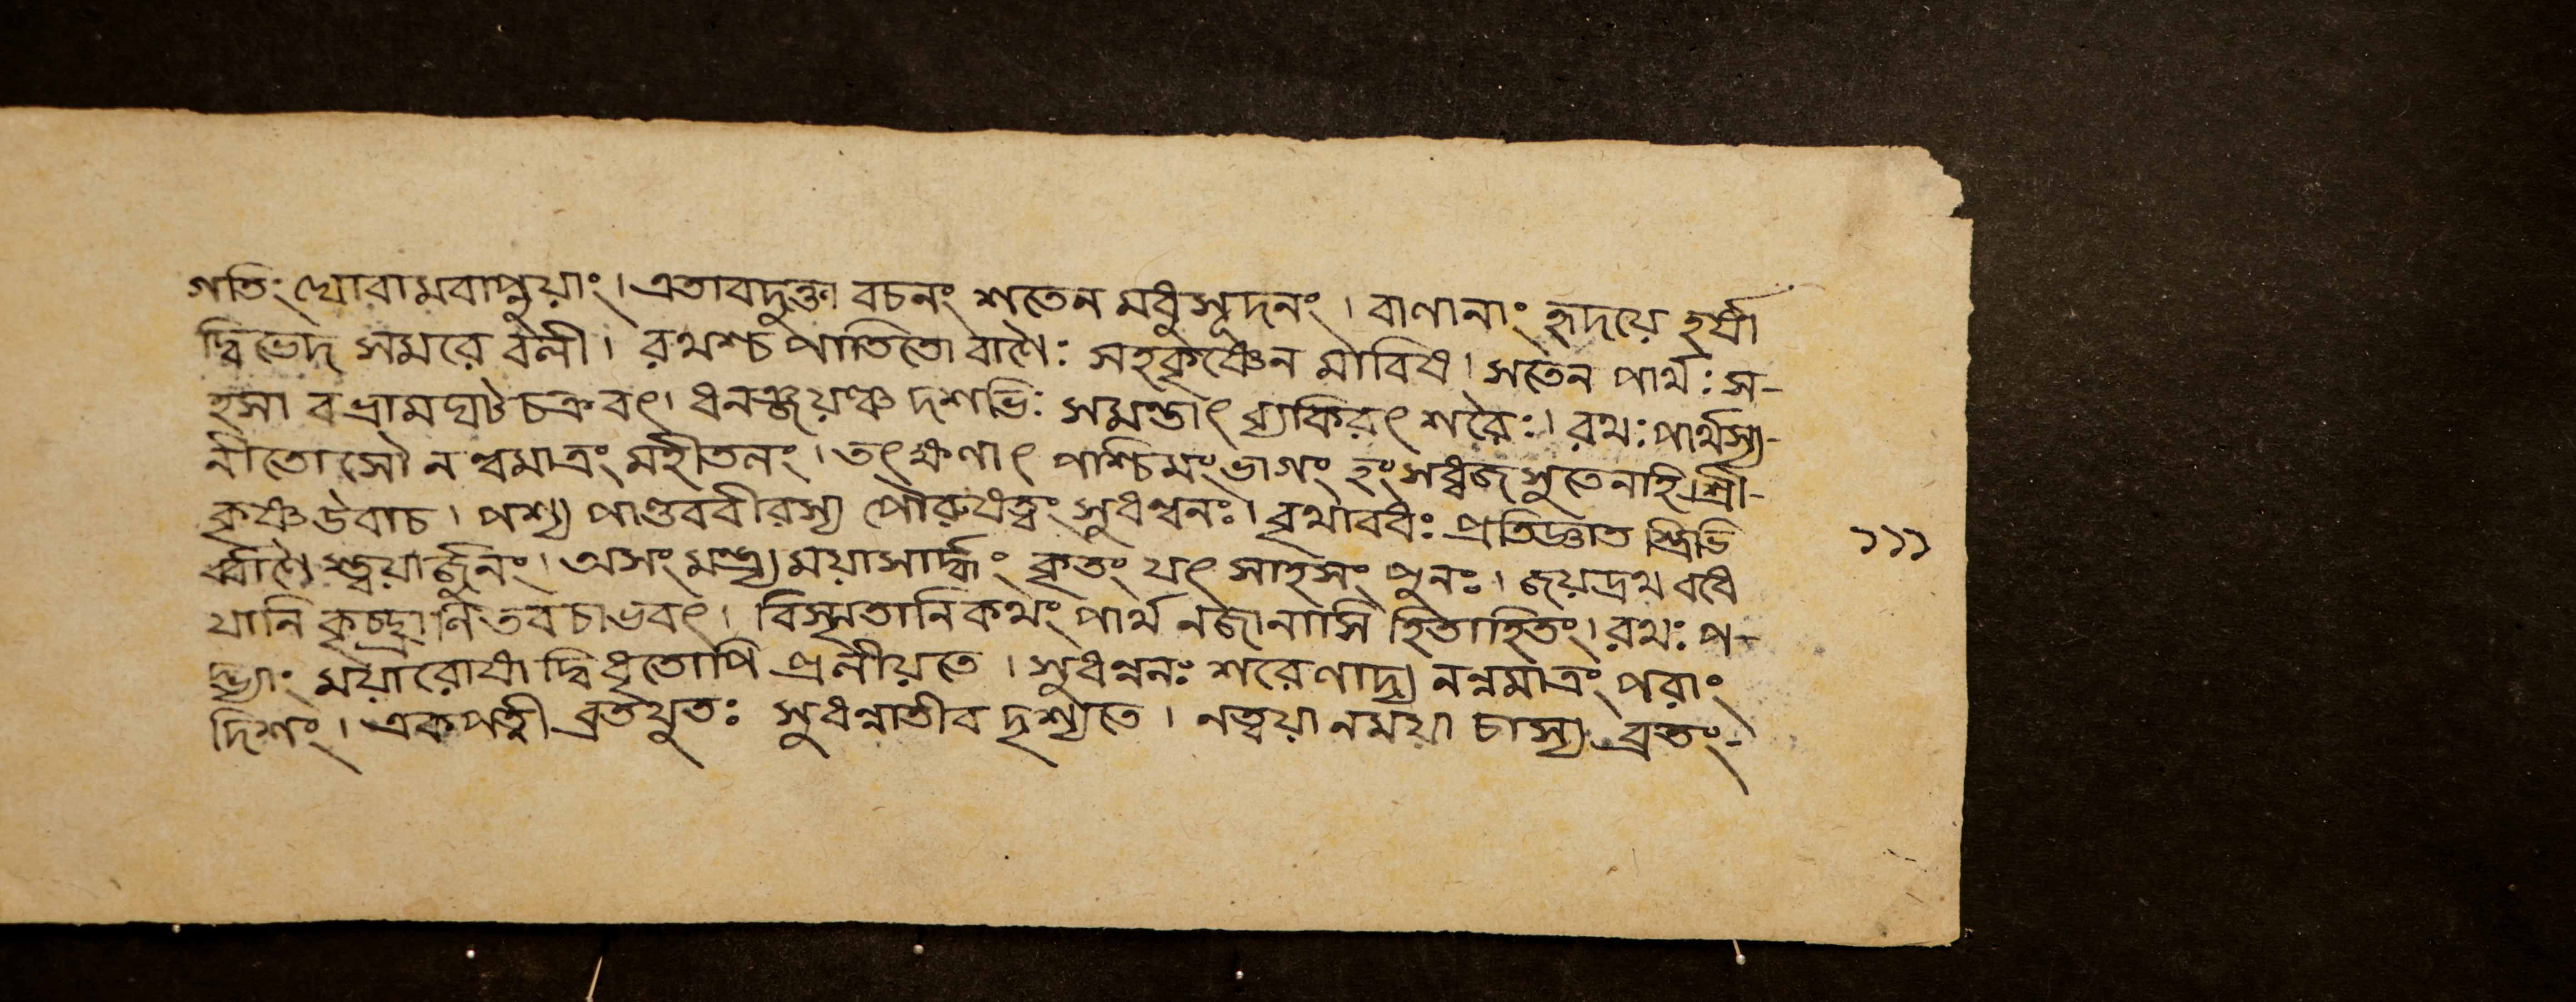 গতিং ঘোরামবাপ্নুয়াং। এতাবদুক্ত্বা বচনং শতেন মধুসূদনং। বাণানাং হৃদয়ে হর্ষা
দ্বিভেদ সমরে বলী। রথশ্চ পাতিতো বাণৈঃ সহকৃষ্ণেন মারিষ। সতেন পার্থঃ স-
হসা বভ্রামঘটচক্রবৎ। ধনঞ্জয়ঞ্চ দশভিঃ সমন্তাৎ ব্যকিরৎ শরৈঃ। রথঃ পার্থস্য-
নীতোসৌ নল্বমাত্রং মহীতলং। তৎক্ষণাৎ পশ্চিমং ভাগং হংসধ্বজসুতেনাহি। শ্রী-
কৃষ্ণউবাচ। পশ্য পাণ্ডববীরস্য পৌরুষত্বং সুধন্বনঃ। বৃথাবধঃ প্রতিজ্ঞাত স্ত্রিভি
র্ব্বাণৈ স্ত্বয়ার্জুনং। অসংমন্ত্র্য ময়াসার্দ্ধং কৃতং যৎ সাহসং পুনঃ। জয়দ্রথ বধে
যানি কৃচ্ছ্রানি তবচাভবৎ। বিসৃতানিকথং পার্থ নজানাসি হিতাহিতং। রথঃ প-
দ্ভ্যাং ময়ারোষা দ্বিধৃতোপি প্রনীয়তে। সুধন্বনঃ শরেণাদ্য নল্বমাত্রং পরাং
দিশং। একপত্নী ব্রতযুতঃ সুধন্বাতীব দৃশ্যতে। নত্বয়া নময়া চাস্য ব্রতং-
১১১